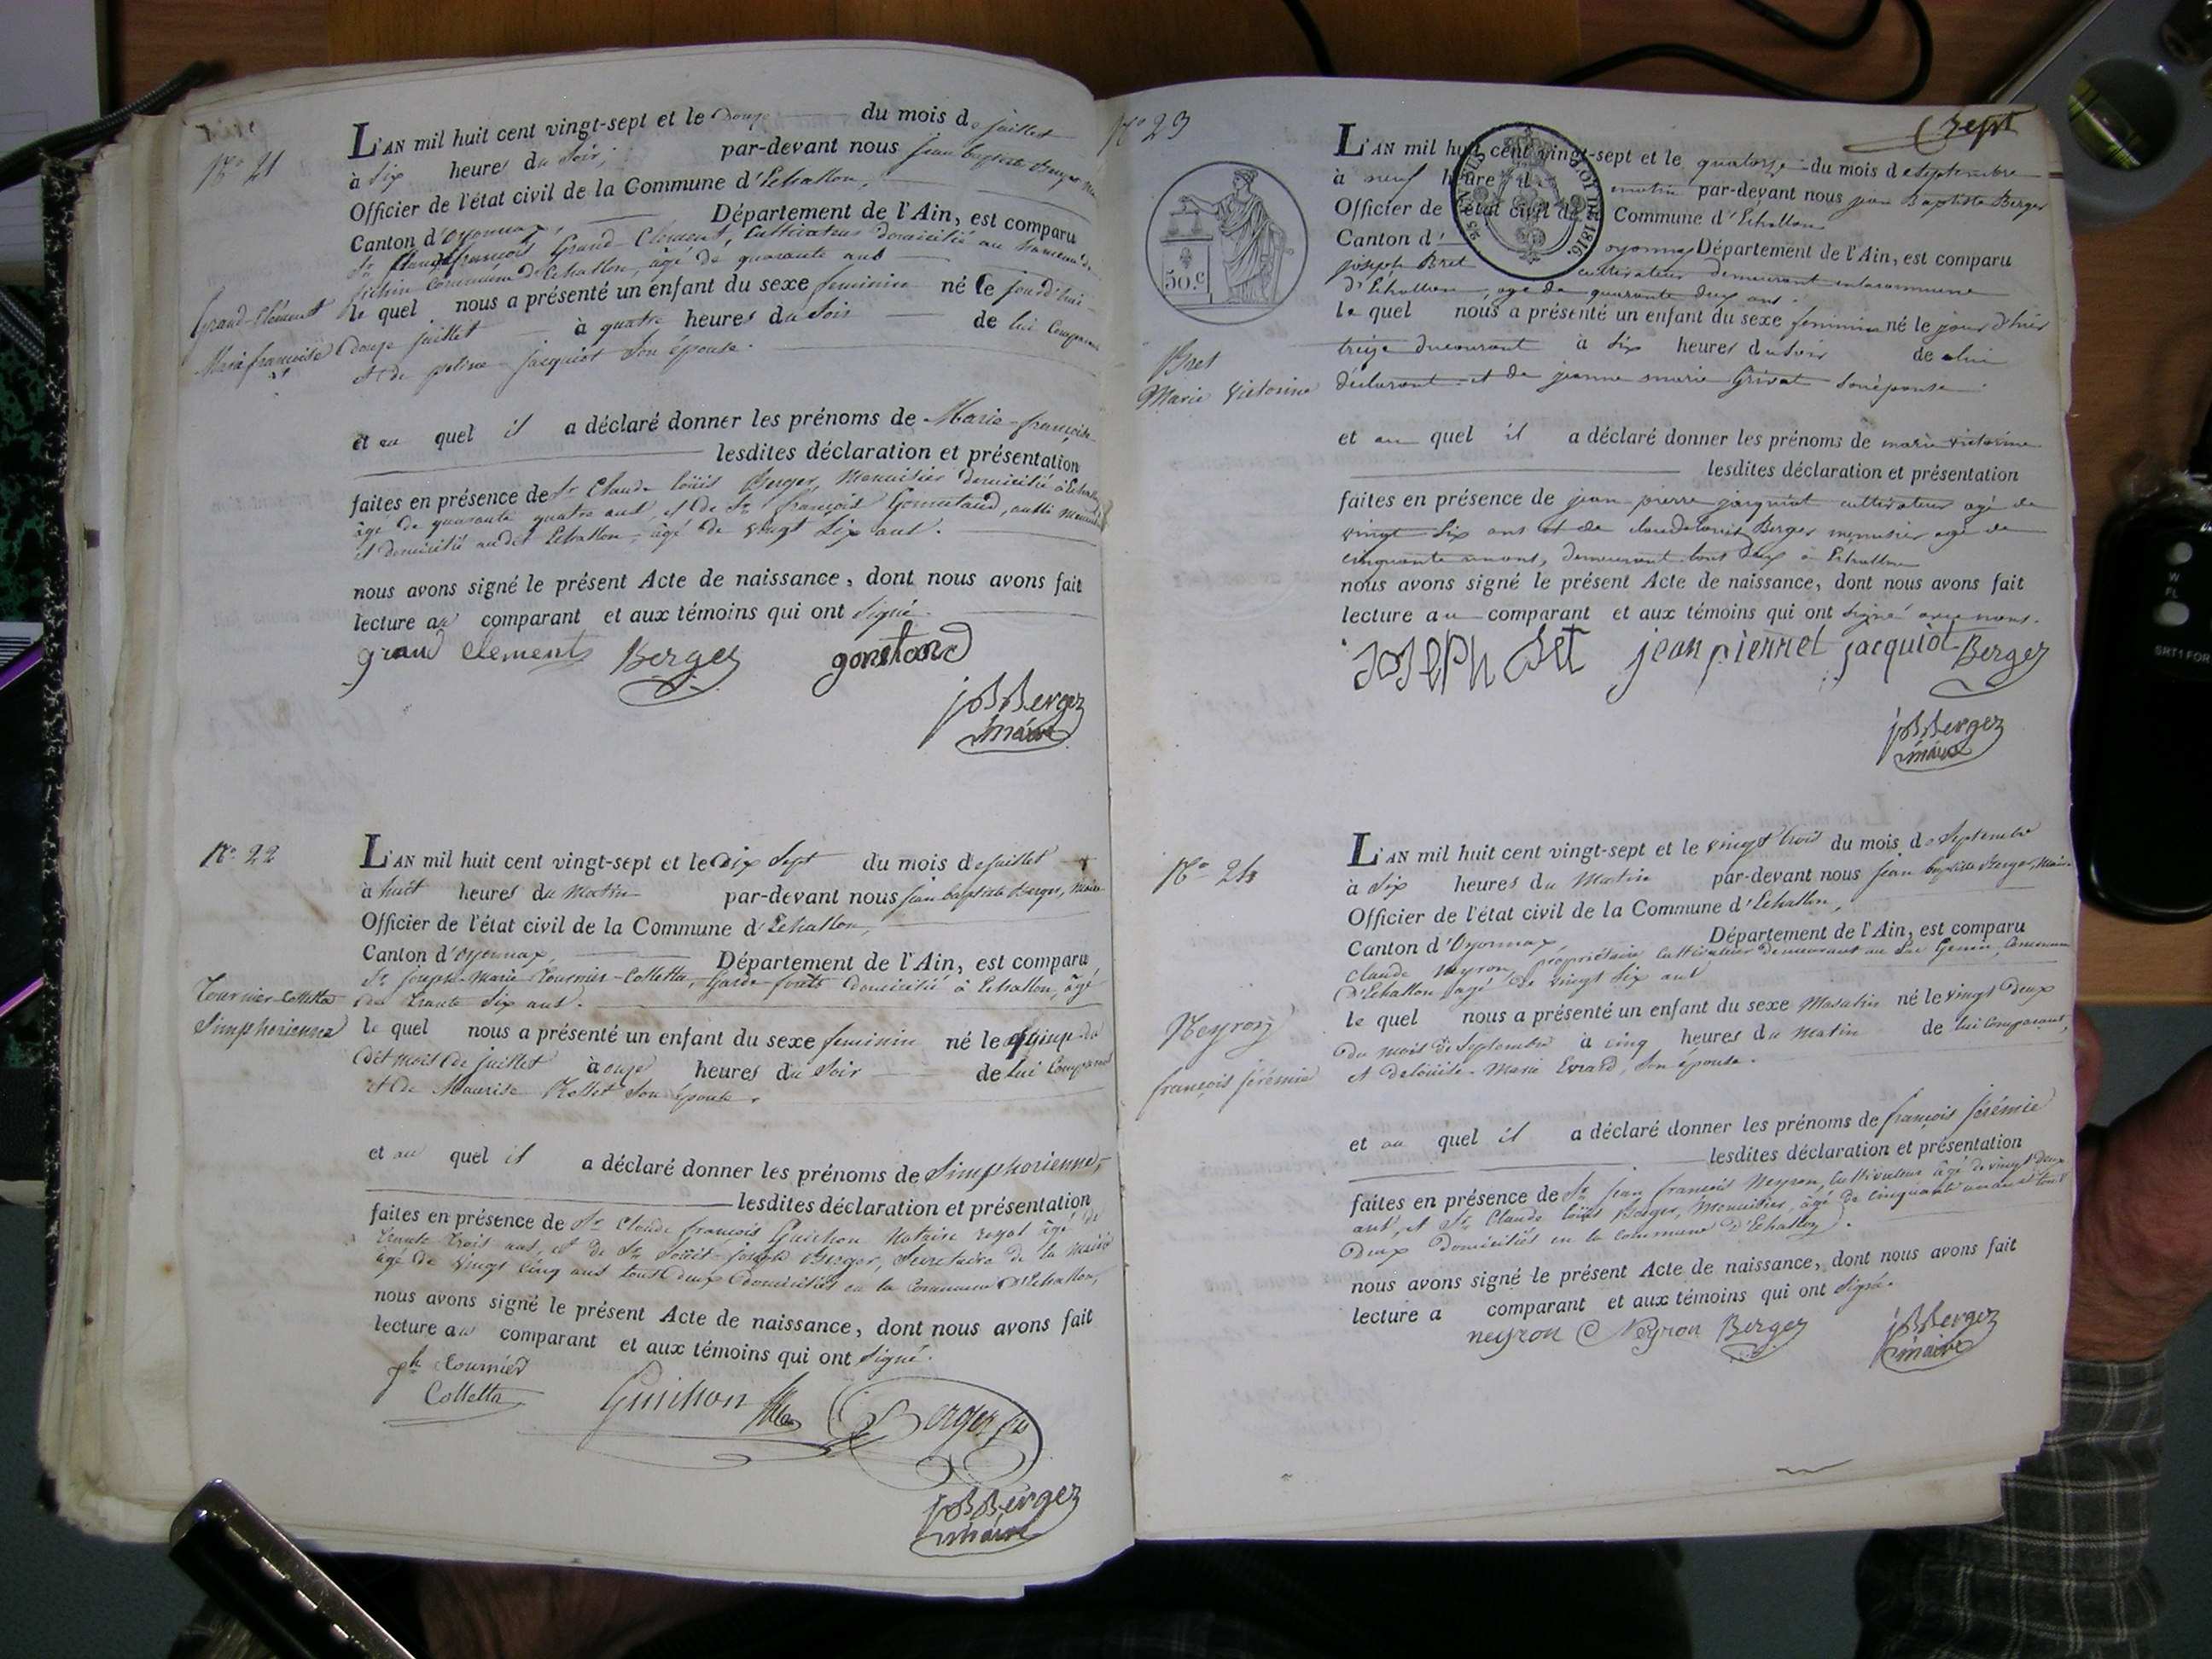 N.o 21
Grand-Clément
Marie françoise
L'AN mil huit cent vingt-sept et le Douze du mois de juillet
à Six heures du Soir, par-devant nous jean baptiste Berger
Officier de l'état civil de la Commune d'Echallon,
Canton d'Oyonnax, Département de l'Ain, est comparu
Sr. Claude françois Grand-Clément, Cultivateur domicilié au hameau de
Commune d'Echallon, âgé de quarante ans
le quel nous a présenté un enfant du sexe feminin né le jourd'hui
Douze juillet à quatre heures du Soir de lui Comparant
et de jacquiot Son épouse.
et au quel il a déclaré donner les prénoms de Marie-françoise
lesdites déclaration et présentation
faites en présence de Sr. Claude loüis Berger, Menuisier domicilié à Echallon
âgé de quarante quatre ans, et de Sr. françois, aussi
et domicilié audit Echallon, âgé de vingt Six ans.
nous avons signé le présent Acte de naissance, dont nous avons fait
lecture au comparant et aux témoins qui ont Signé.
grand clement Berger gonstand
jBBerger
maire
N.o 22
Tournier-Colletta
Simphorienne
L'AN mil huit cent vingt-sept et le Dix Sept du mois de juillet
à huit heures du Matin par-devant nous jean baptiste Berger, Maire
Officier de l'état civil de la Commune d'Echallon,
Canton d'Oyonnax, Département de l'Ain, est comparu
Sr. joseph-Marie Tournier-Colletta, Garde-forêts domicilié à Echallon, âgé
de Trante Six ans.
le quel nous a présenté un enfant du sexe feminin né le quinze du
dit mois de juillet à onze heures du Soir de lui Comparant
et de Maurise Rollet Son épouse.
et au quel il a déclaré donner les prénoms de Simphorienne,
lesdites déclaration et présentation
faites en présence de Sr. Claude françois Guichon Notaire royal âgé de
Trante Trois ans, et de Sr. joseph Berger, Secretaire de la mairie
âgé de Vingt Cinq ans tous deux domiciliés en la Commune d'Echallon,
nous avons signé le présent Acte de naissance, dont nous avons fait
lecture au comparant et aux témoins qui ont Signé.
jh tournier
Colletta
Guichon Berger
jBBerger
maire
Sept
N.o 23
50.c
25 AVRIL LOI DE 1816.
Bret
Marie Victorine
L'AN mil huit cent vingt-sept et le quatorze du mois de Septembre
à neuf heure du matin par-devant nous jean Baptiste Berger
Officier de l'état civil de la Commune d'Echallon
Canton d' oyonnax Département de l'Ain, est comparu
joseph Bret cultivateur demeurant en la commune
d'Echallon, age de quarante deux ans.
le quel nous a présenté un enfant du sexe feminin né le jour d'hier
treize du courant à Six heures du Soir de lui
déclarant et de jeanne marie Grivat Son épouse
et au quel il a déclaré donner les prénoms de marie victorine
lesdites déclaration et présentation
faites en présence de jean pierre jacquiot cultivateur agé de
vingt Six ans et de claude louis Berger menuisier agé de
cinquante un ans, demeurant tous deux à Echallon
nous avons signé le présent Acte de naissance, dont nous avons fait
lecture au comparant et aux témoins qui ont Signé avec nous.
joseph bret jean pierret jacquiot Berger
jBBerger
maire
N.o 24
Neyron
françois jérémie
L'AN mil huit cent vingt-sept et le vingt trois du mois de Septembre
à Six heures du Matin par-devant nous jean baptiste Berger, Maire
Officier de l'état civil de la Commune d'Echallon,
Canton d'Oyonnax, Département de l'Ain, est comparu
Claude Neyron, propriétaire Cultivateur demeurant au Lac Genin, Commune
d'Echallon, agé de vingt Six ans
le quel nous a présenté un enfant du sexe Masculin né le vingt Deux
du mois de Septembre à cinq heures du Matin de lui Comparant,
et de loüise-Marie Evrard, Son épouse.
et au quel il a déclaré donner les prénoms de françois jérémie
lesdites déclaration et présentation
faites en présence de Sr. jean françois Neyron, Cultivateur âgé de vingt deux
ans, et Sr. Claude loüis Berger, Menuisier, âgé de cinquante un ans tous
Deux domiciliés en la Commune d'Echallon.
nous avons signé le présent Acte de naissance, dont nous avons fait
lecture a comparant et aux témoins qui ont Signé.
neyron C Neyron Berger
jBBerger
maire
W
FL